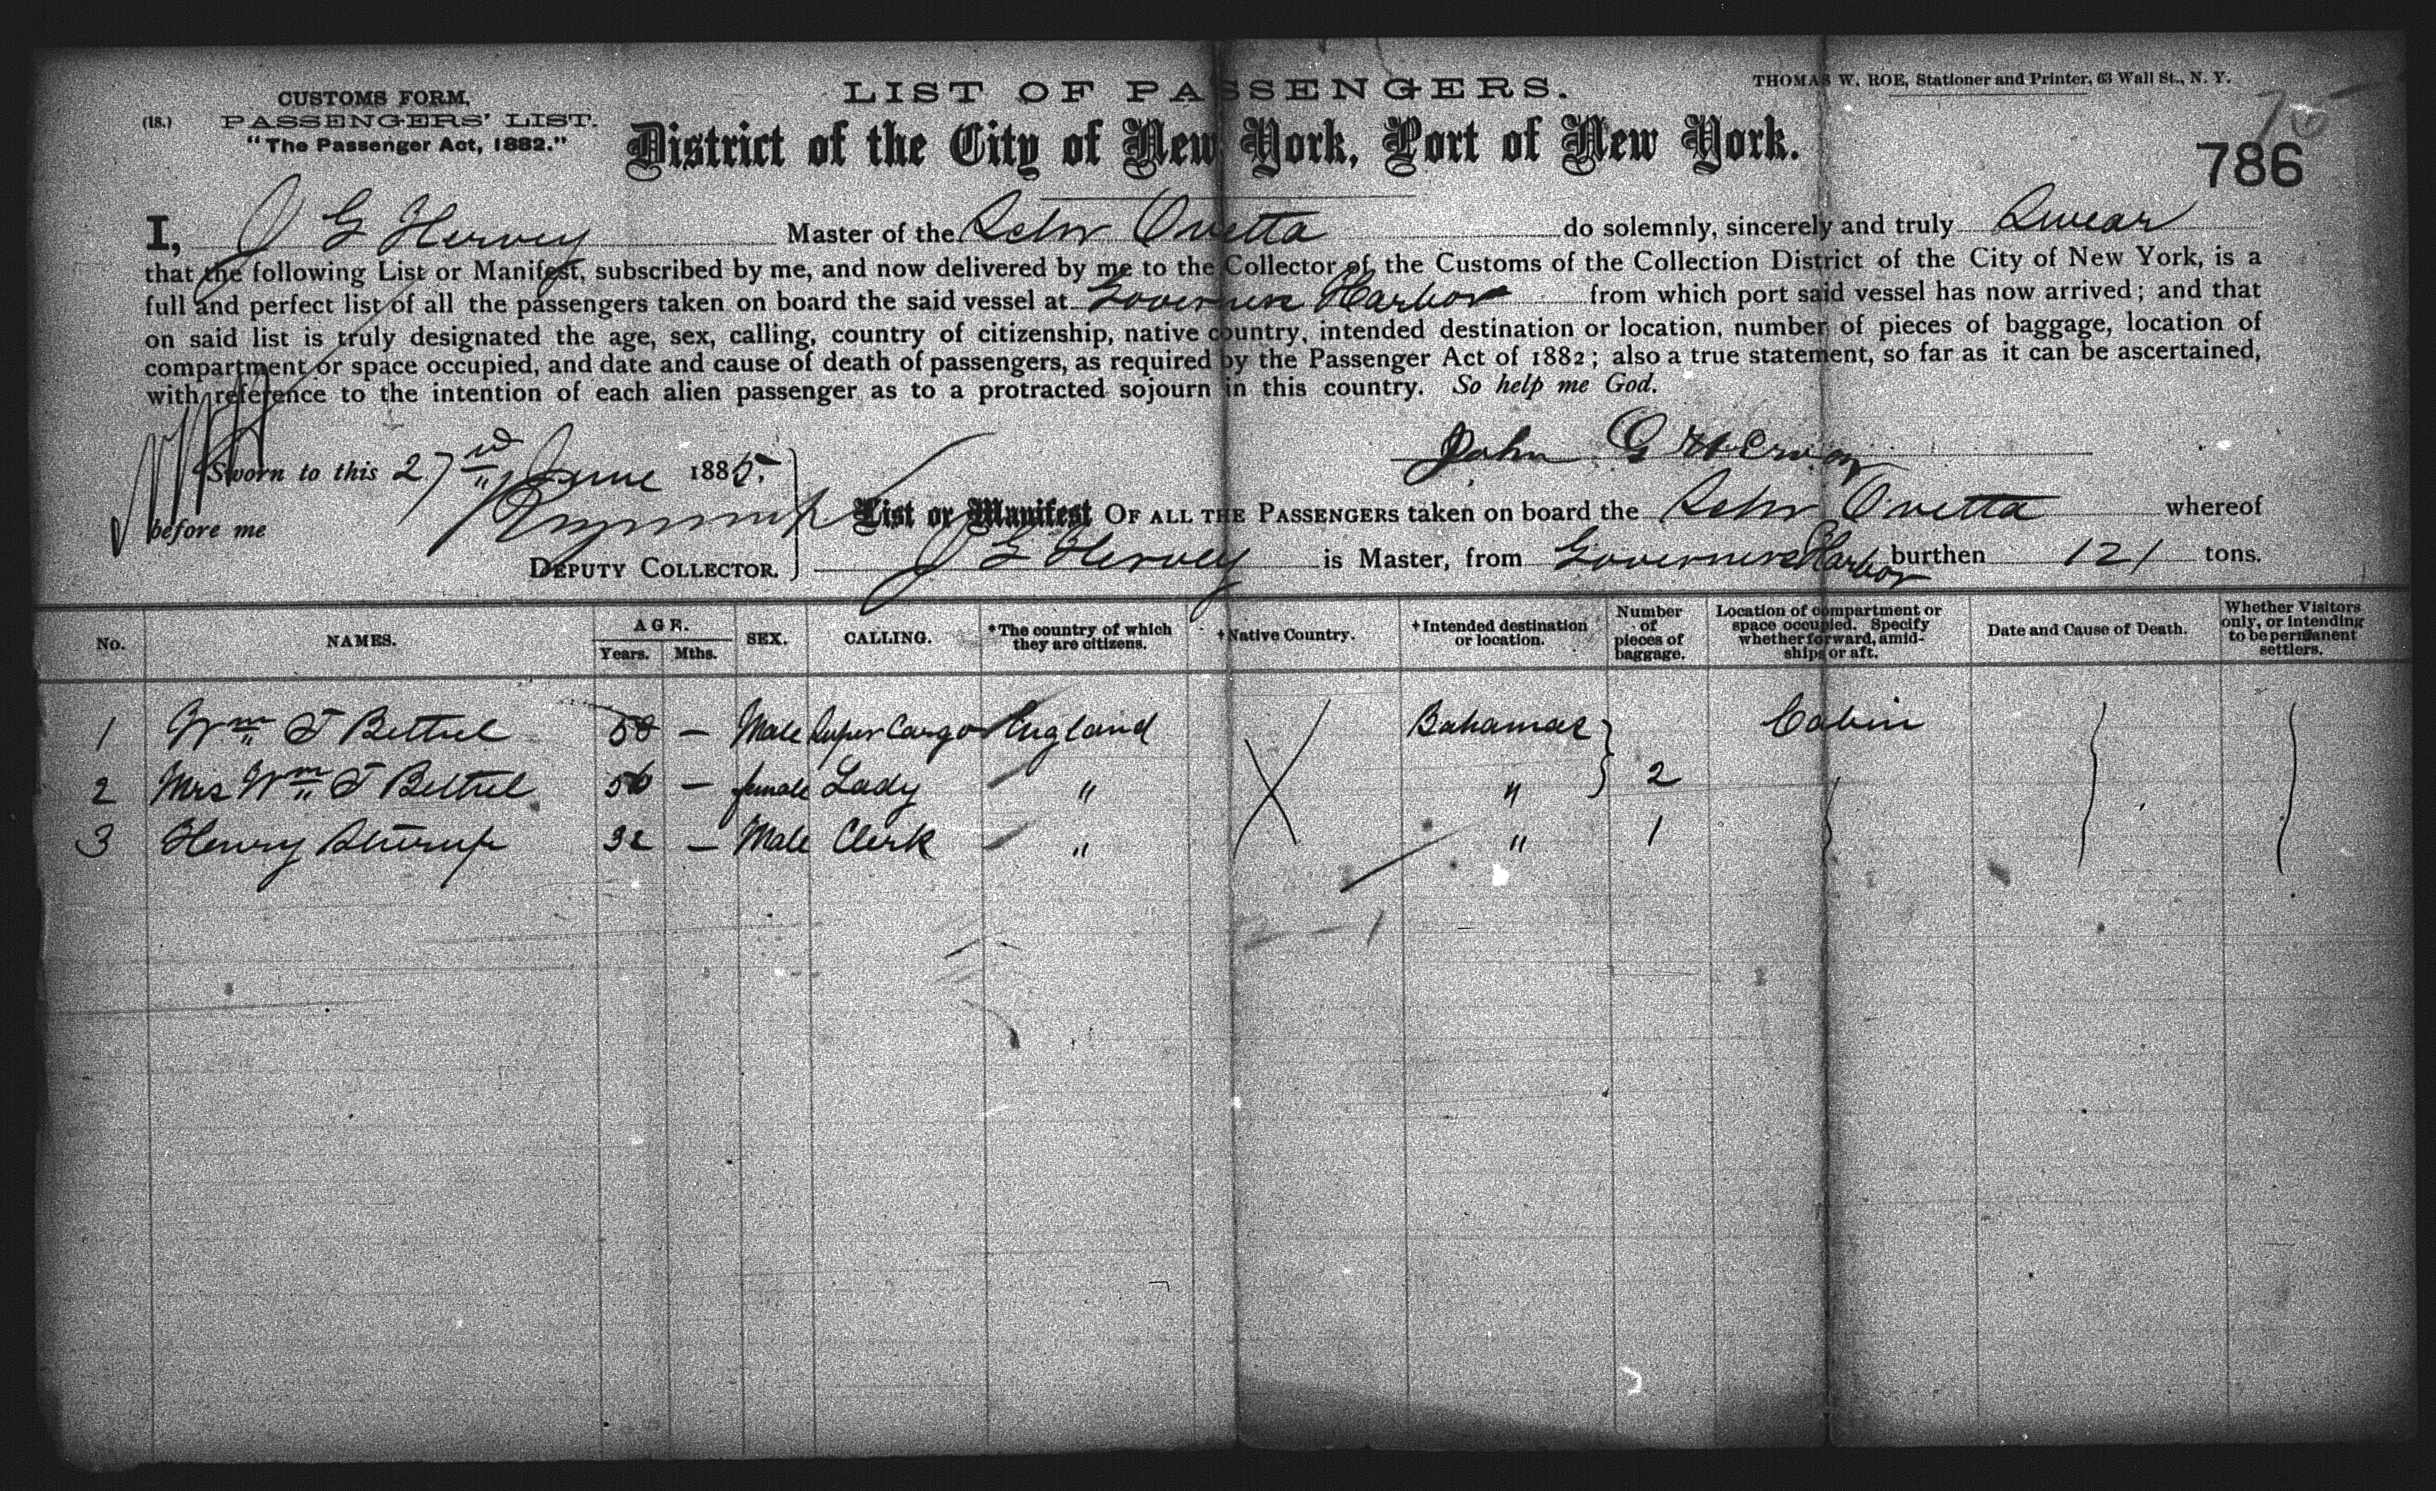 LIST OF PASSENGERS.
THOMAS W. ROE, Stationer and Printer, 63 Wall St., N. Y.
CUSTOMS FORM,
(18.) PASSENGERS' LIST.
"The Passenger Act, 1882."
District of the City of New York, Port of New York.
75
786
I, J G Hervey Master of the Schr Ovetta do solemnly, sincerely and truly Swear
that the following List or Manifest, subscribed by me, and now delivered by me to the Collector of the Customs of the Collection District of the City of New York, is a
full and perfect list of all the passengers taken on board the said vessel at Governers Harbor from which port said vessel has now arrived; and that
on said list is truly designated the age, sex, calling, country of citizenship, native country, intended destination or location, number of pieces of baggage, location of
compartment or space occupied, and date and cause of death of passengers, as required by the Passenger Act of 1882; also a true statement, so far as it can be ascertained,
with reference to the intention of each alien passenger as to a protracted sojourn in this country. So help me God.
John G Hervey
Sworn to this 27 June 1885.
before me
DEPUTY COLLECTOR.
List or Manifest OF ALL THE PASSENGERS taken on board the Schr Ovetta whereof
J G Hervey is Master, from Governers Harbor burthen 121 tons.
No. NAMES. AGE. Years. Mths. SEX. CALLING. *The country of which they are citizens. †Native Country. †Intended destination or location. Number of pieces of baggage. Location of compartment or space occupied. Specify whether forward, amidships or aft. Date and Cause of Death. Whether Visitors only, or intending to be permanent settlers.
1 Wm T Bethel 58 — Male Super Cargo England Bahamas Cabin
2 Mrs Wm T Bethel 56 — female Lady " " 2
3 Henry Sturrup 32 — Male Clerk " " 1